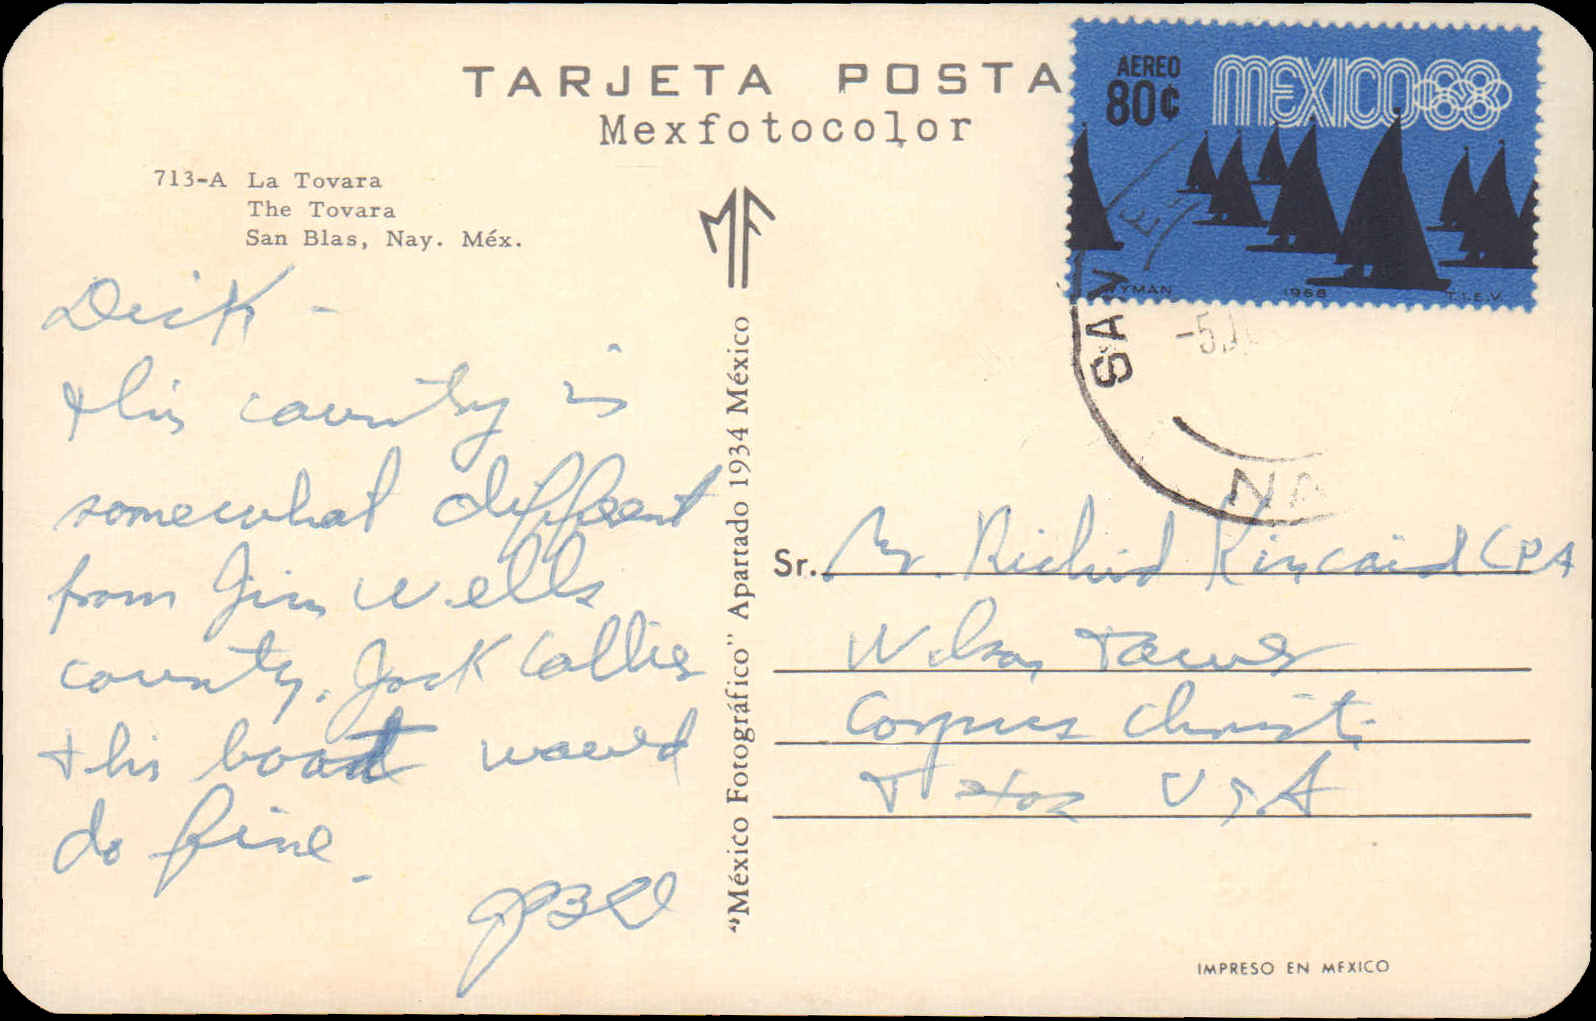 TARJETA POSTA
Mexfotocolor
AEREO
80¢
MEXICO68
YMAN 1968 T.I.E.V.
713-A La Tovara
The Tovara
San Blas, Nay. Méx.
MF
SAN
NA
-5
Dick -
this country is
somewhat different
from Jim Wells
county. Jack Collier
+ his boat would
do fine.
"México Fotográfico" Apartado 1934 México
Sr. Mr. Richard Kincaid CPA
Wilson Tower
Corpus Christi
Texas USA
IMPRESO EN MEXICO